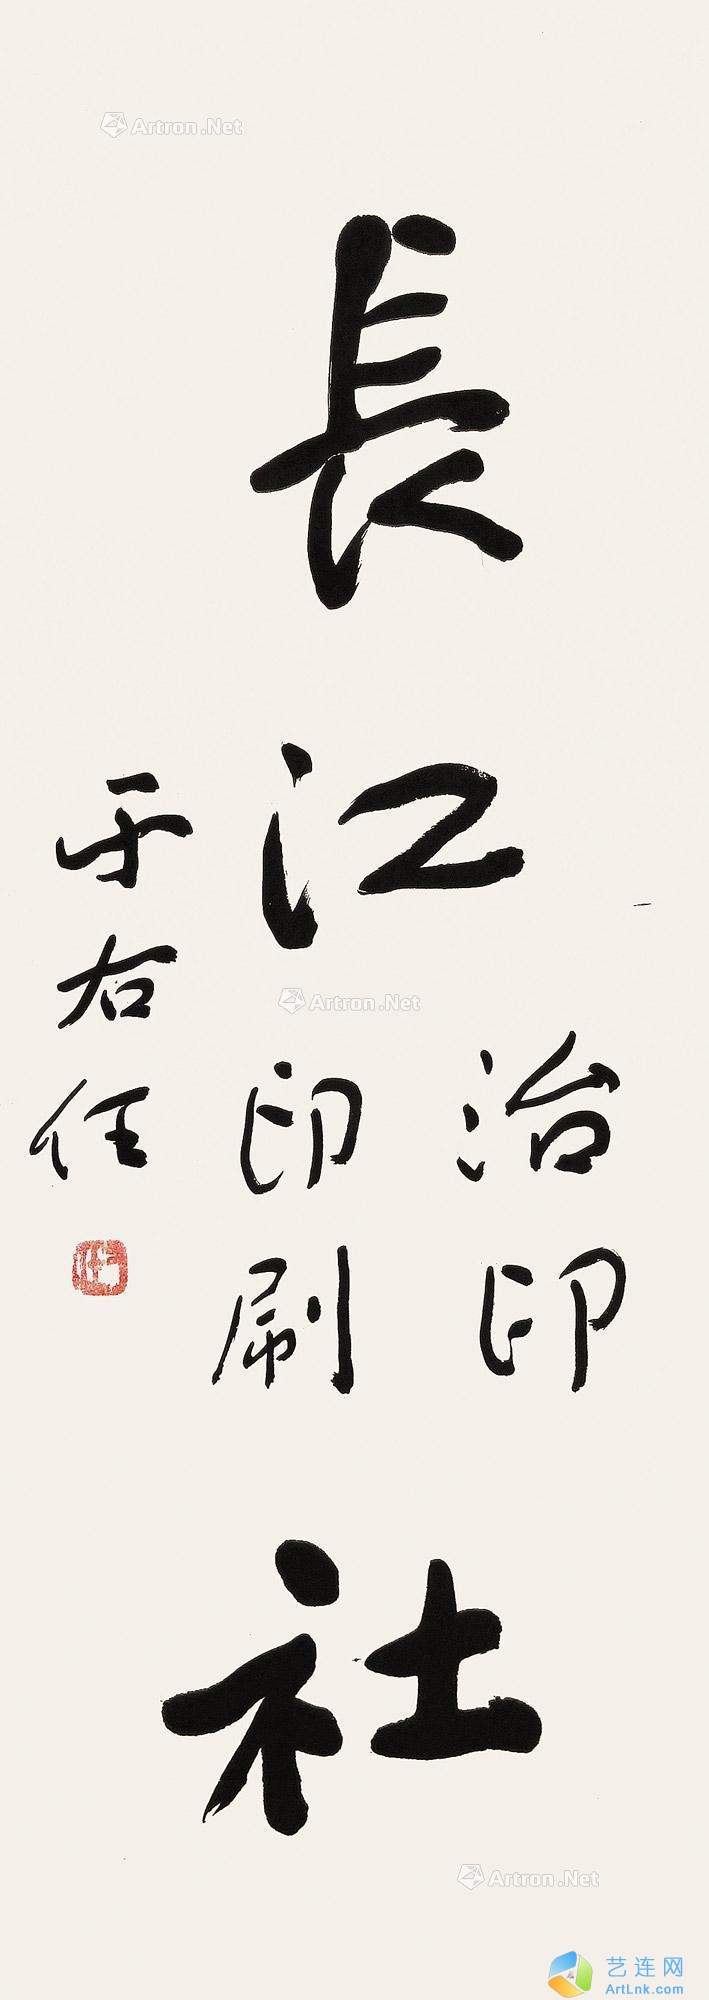 長江
治印
印刷
社
于右任
Artron.Net
Artron.Net
Artron.Net
艺连网
ArtLnk.com